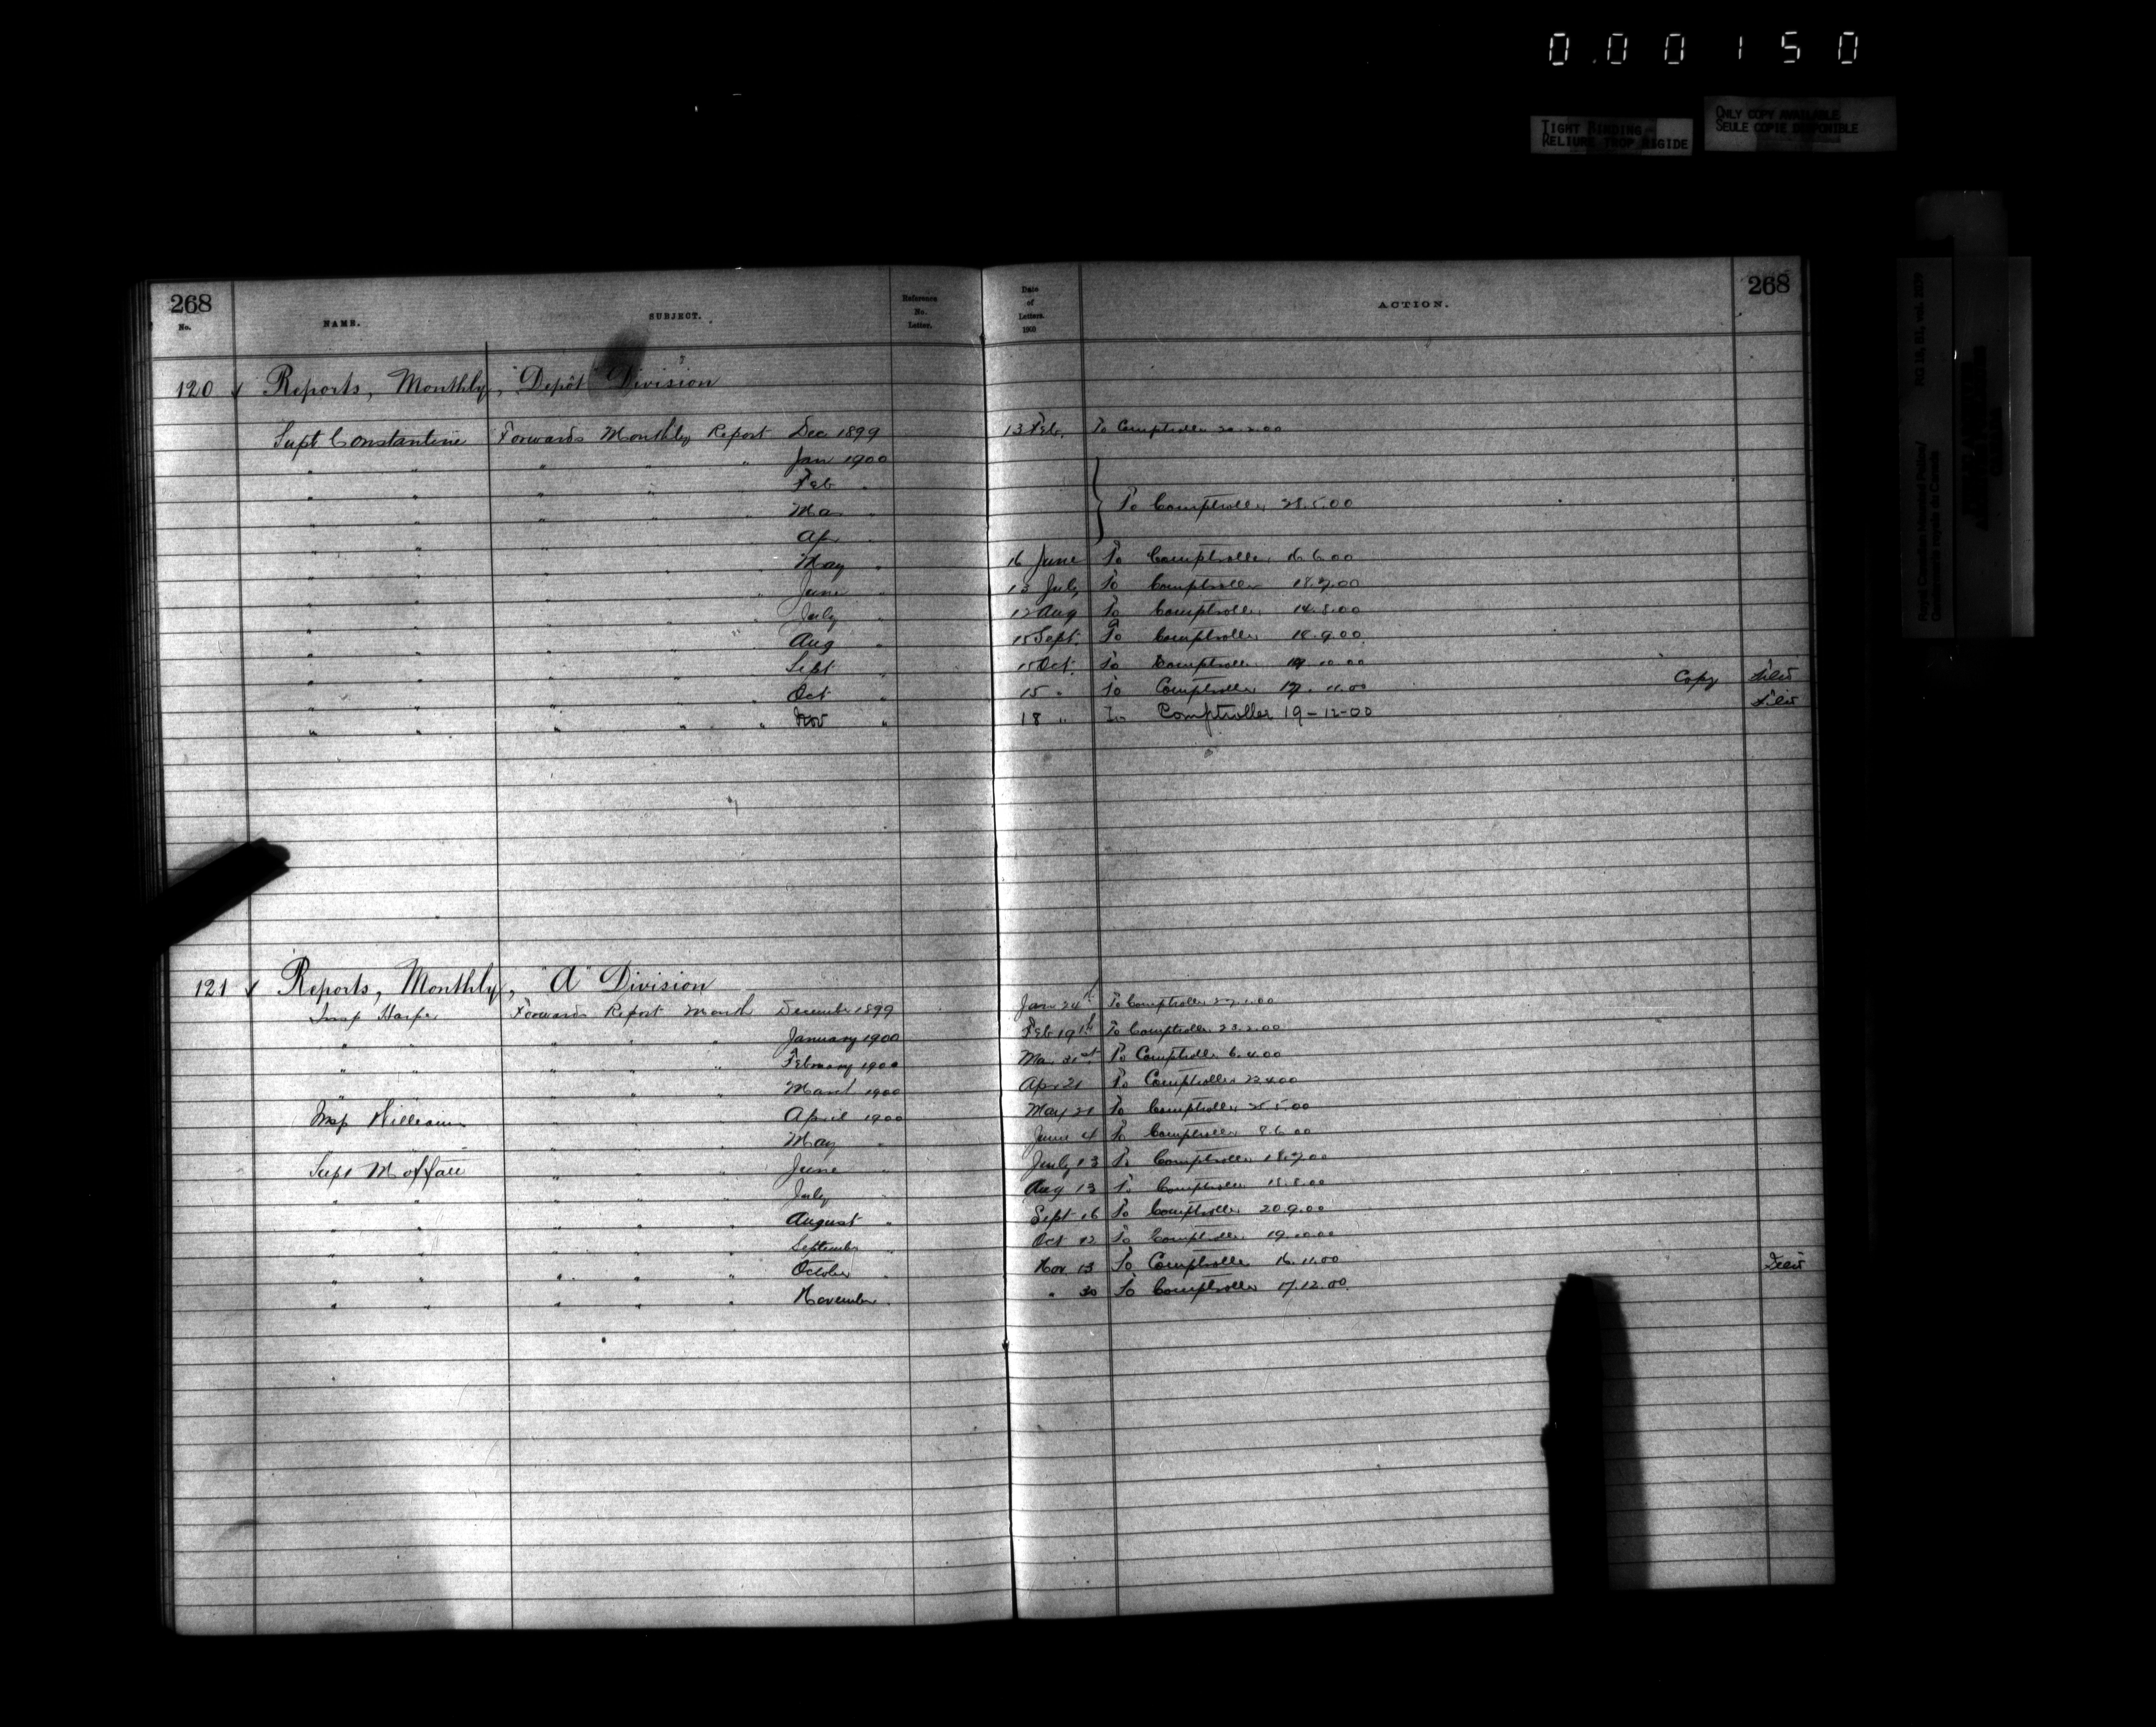 0.00150
TIGHT BINDING
RELIURE TROP RIGIDE
ONLY COPY AVAILABLE
SEULE COPIE DISPONIBLE
268 268
No. NAME. SUBJECT. Reference No. Letter. Date of Letters. 1900 ACTION.
120 ✓ Reports, Monthly, "Depôt" Division
Supt Constantine Forwards Monthly Report Dec 1899 13 Feb. To Comptroller 20.2.00
" " " " " Jan 1900
" " " " " Feb "
" " " " " Mar " } To Comptroller 28.5.00
" " " " " Ap "
" " " " " May " 16 June To Comptroller 16.6.00
" " " " " June " 13 July To Comptroller 18.7.00
" " " " " July " 12 Aug To Comptroller 14.8.00
" " " " " Aug " 15 Sept. To Comptroller 18.9.00
" " " " " Sept " 15 Oct. To Comptroller 10.00
" " " " " Oct " 15 " To Comptroller 17.11.00 Copy filed
" " " " " Nov " 18 " To Comptroller 19-12-00 filed
121 ✓ Reports, Monthly, "A" Division
Insp Harper Forwards Report Month December 1899 Jan 24th To Comptroller 27.1.00
" " " " " January 1900 Feb 19th To Comptroller 23.2.00
" " " " " February 1900 Mar 31st To Comptroller 6.4.00
" " " " " March 1900 Apr 21 To Comptroller 23.4.00
Insp Williams " " " April 1900 May 21 To Comptroller 25.5.00
" " " May " June 4 To Comptroller 8.6.00
Supt Moffatt " " " June " July 13 To Comptroller 18.7.00
" " " " " July " Aug 13 To Comptroller 18.8.00
" " " " " August " Sept 16 To Comptroller 20.9.00
" " " " " September " Oct 12 To Comptroller 19.10.00
" " " " " October " Nov 13 To Comptroller 16.11.00 Filed
" " " " " November " " 30 To Comptroller 17.12.00